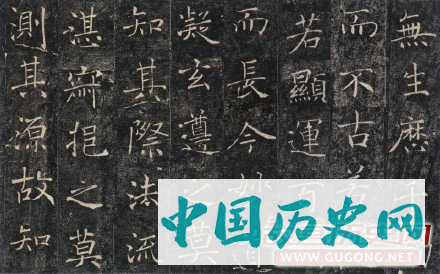 無生歷千
而不古若
若顯運百
而長今妙道
凝玄遵之莫
知其際法流
湛寂挹之莫
測其源故知
中国历史网
WWW.GUGONG.NET